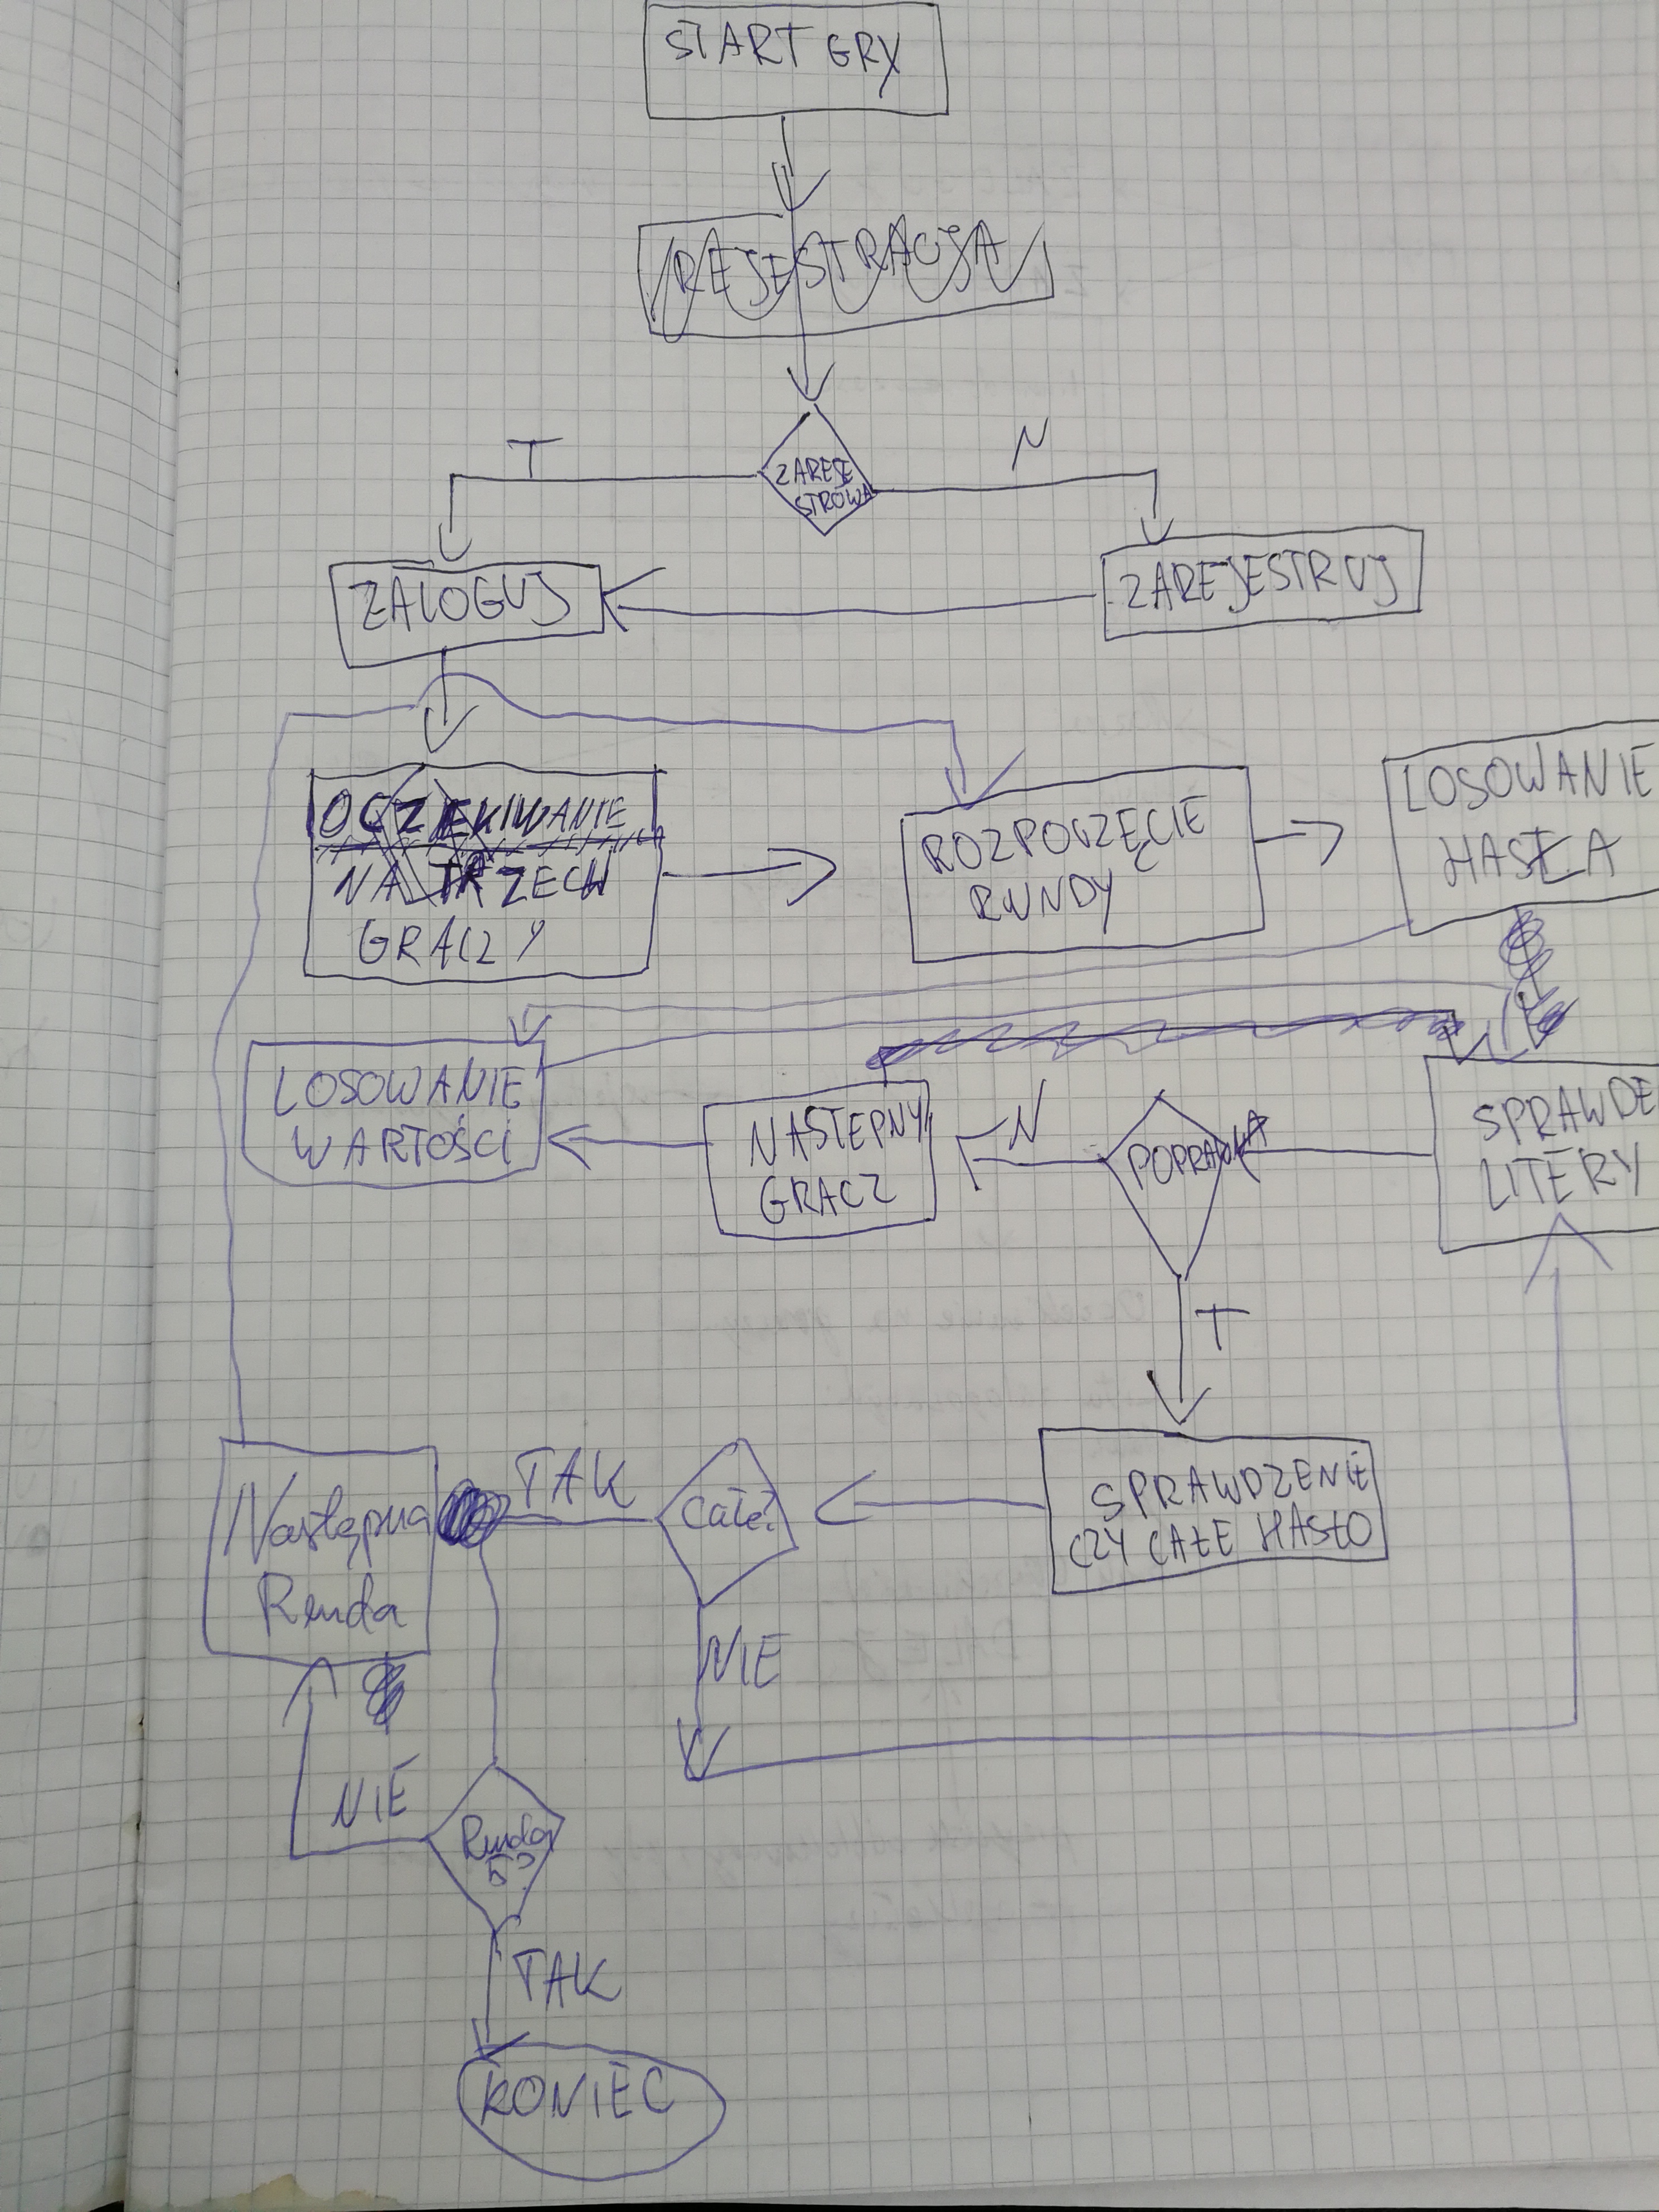 START GRY
REJESTRACJA
T
N
ZAREJE
STROWA
ZALOGUJ
ZAREJESTRUJ
OCZEKIWANIE
NA TRZECH
GRACZY
ROZPOCZĘCIE
RUNDY
LOSOWANIE
HASŁA
LOSOWANIE
WARTOŚCI
NASTEPNY
GRACZ
N
POPRAWNA
SPRAWDE
LITERY
T
Następna
Runda
TAK
Całe?
SPRAWDZENIE
CZY CAŁE HASŁO
NIE
NIE
Runda
5?
TAK
KONIEC